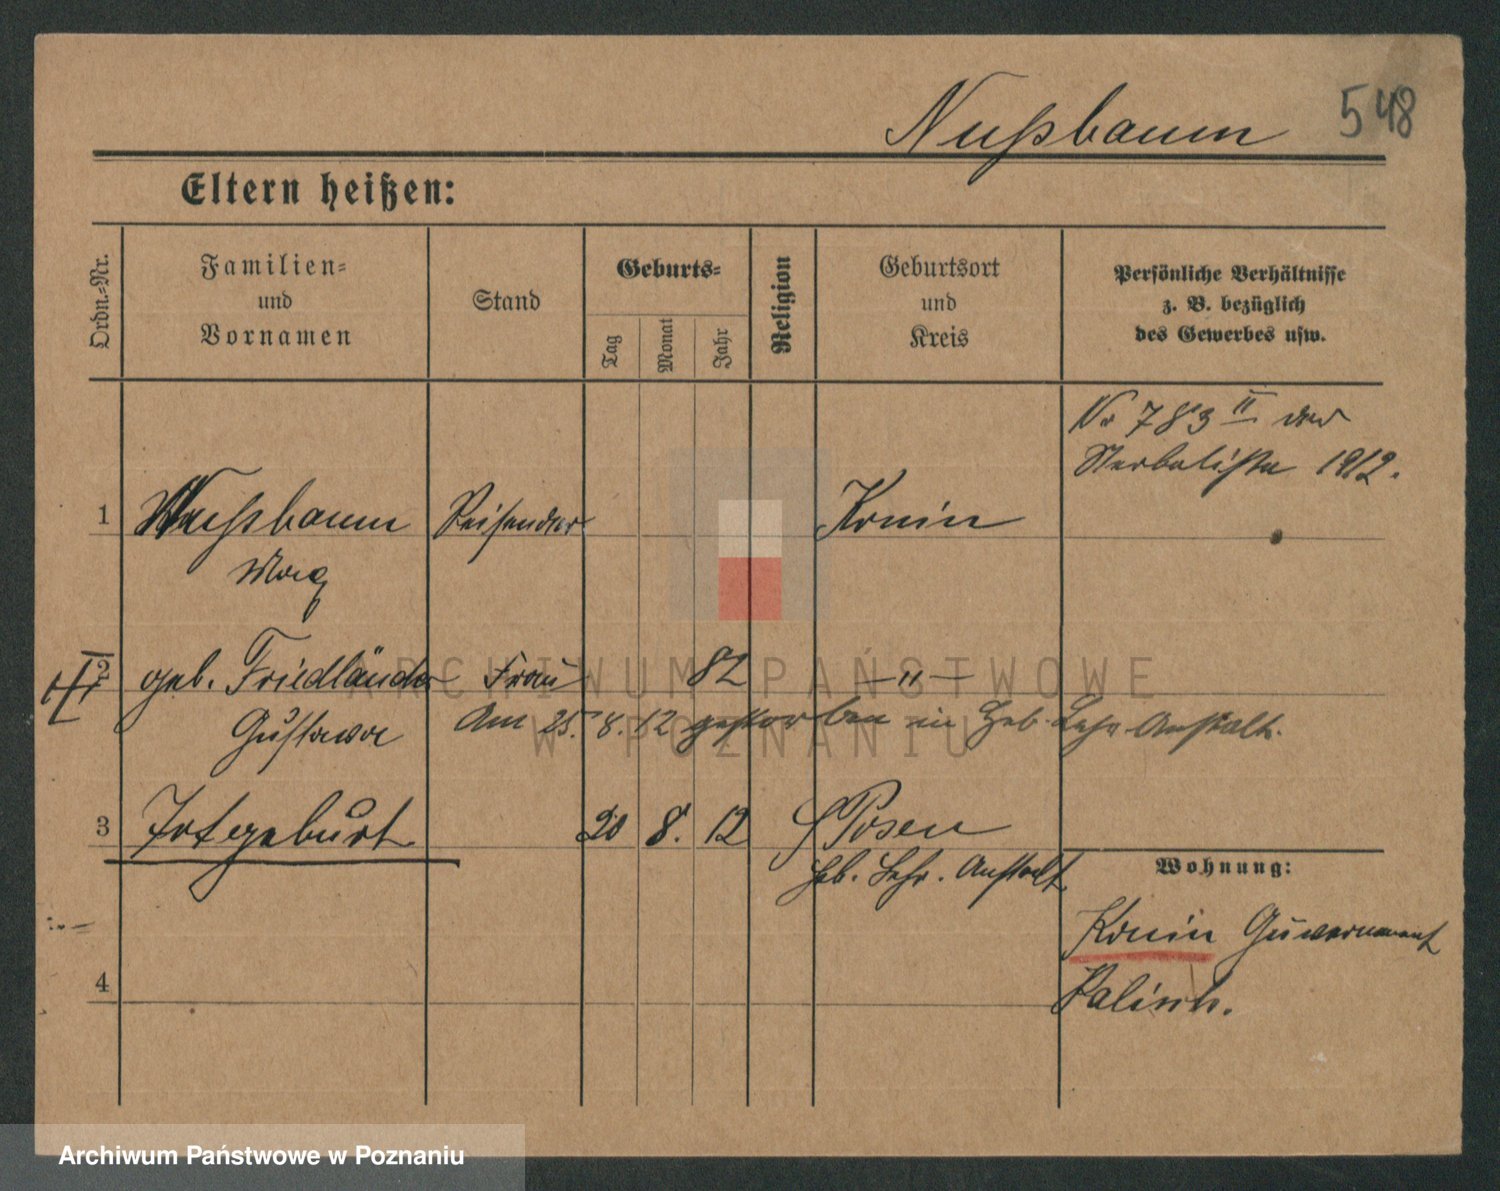 Nußbaum 548
Eltern heißen:
Ordn.-Nr.
Familien-
und
Vornamen
Stand
Geburts-
Tag
Monat
Jahr
Religion
Geburtsort
und
Kreis
Persönliche Verhältnisse
z. B. bezüglich
des Gewerbes usw.
Nr 783 II der
Sterbeliste 1912.
1 Nußbaum Reisender Konin
Max
2 geb. Friedländer Frau 82 — " —
Gustawa
Am 25. 8. 12 gestorben in Heb. Lehr-Anstalt.
3 Totgeburt 20 8. 12 Posen
Heb. Lehr. Anstalt
Wohnung:
Konin Guvernement
Kalisch.
4
ARCHIWUM PAŃSTWOWE
W POZNANIU
Archiwum Państwowe w Poznaniu